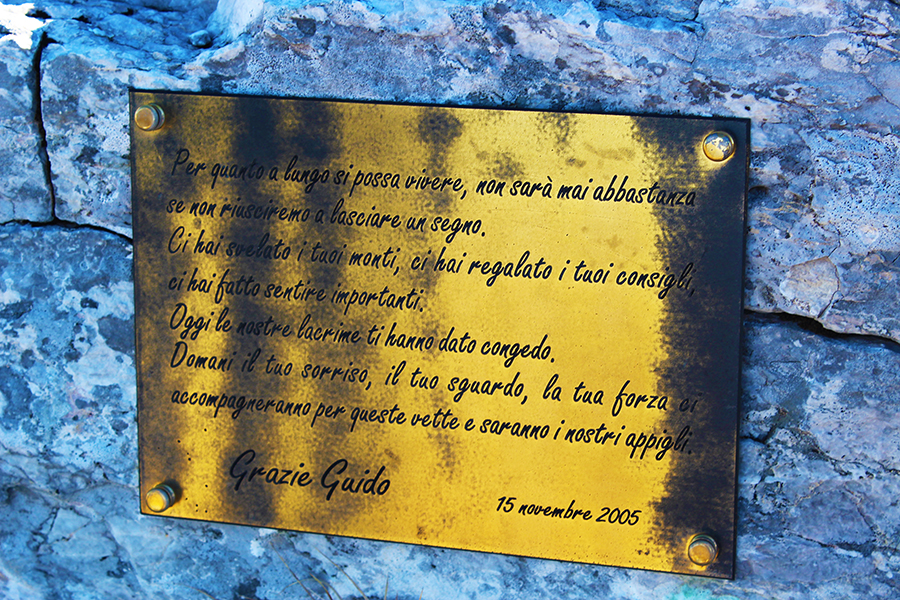 Per quanto a lungo si possa vivere, non sarà mai abbastanza
se non riusciremo a lasciare un segno.
Ci hai svelato i tuoi monti, ci hai regalato i tuoi consigli,
ci hai fatto sentire importanti.
Oggi le nostre lacrime ti hanno dato congedo.
Domani il tuo sorriso, il tuo sguardo, la tua forza ci
accompagneranno per queste vette e saranno i nostri appigli.
Grazie Guido
15 novembre 2005